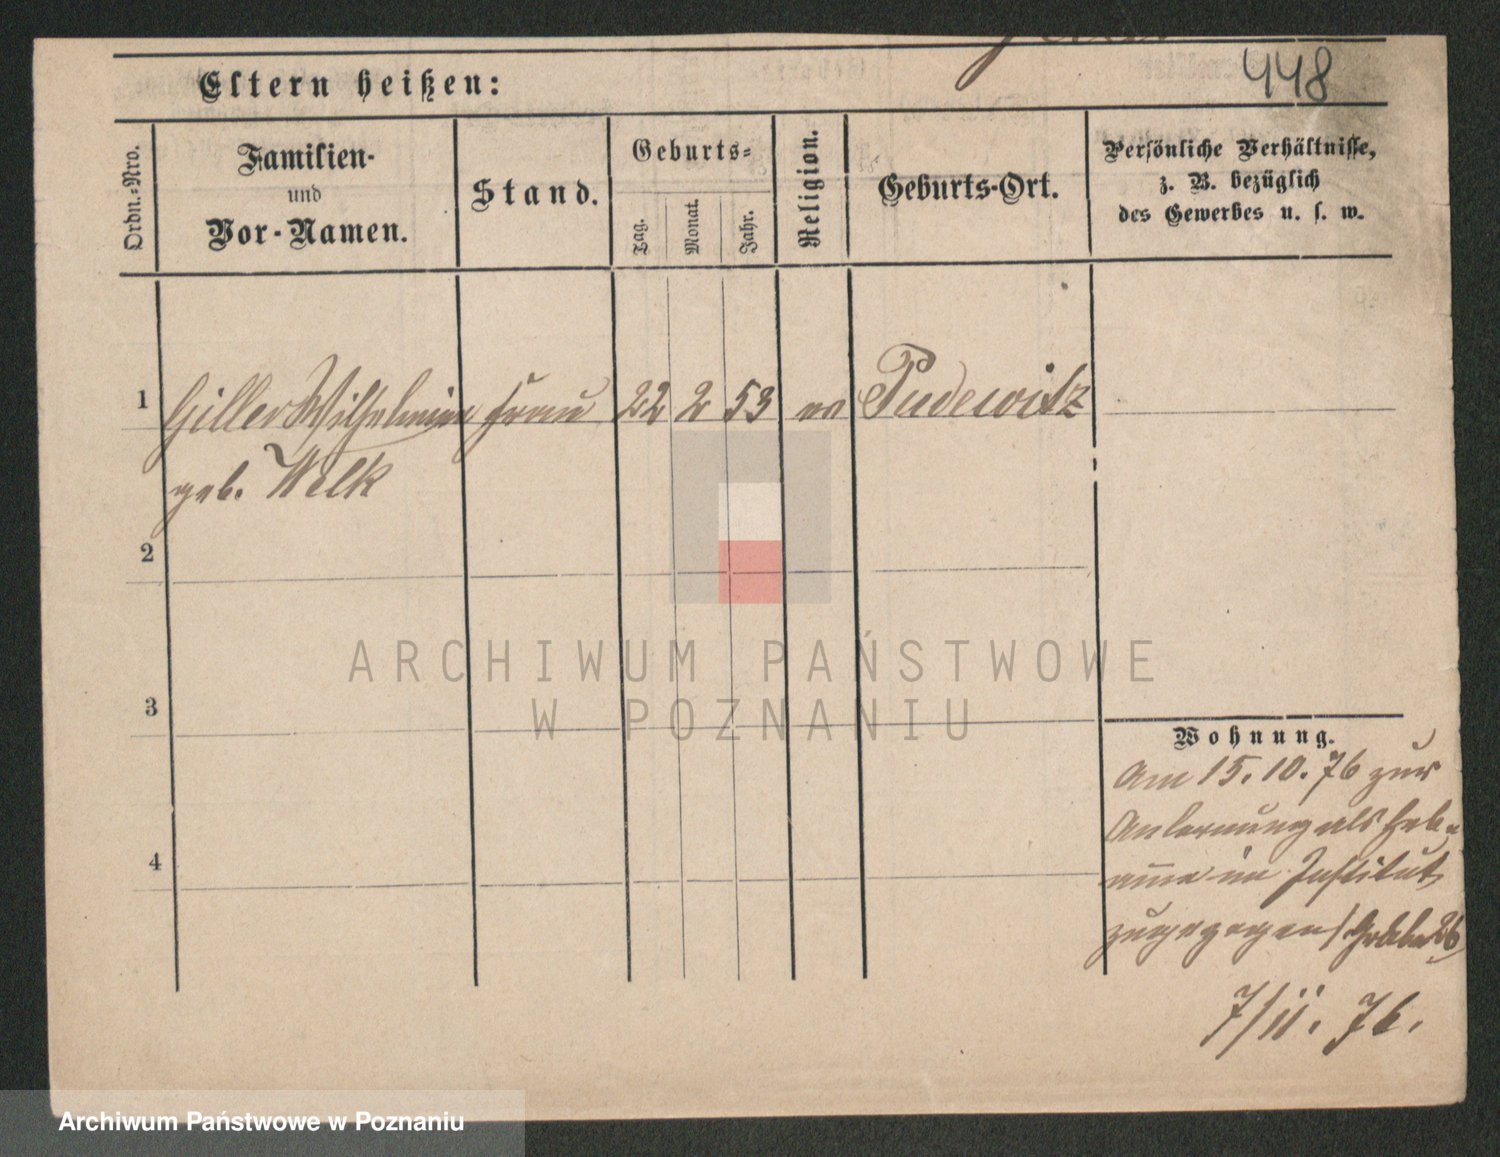 448
Eltern heißen:
Ordn.-Nro.
Familien-
und
Vor-Namen.
Stand.
Geburts-
Tag.
Monat.
Jahr.
Religion.
Geburts-Ort.
Persönliche Verhältnisse,
z. B. bezüglich
des Gewerbes u. s. w.
1 Giller Wilhelmine Frau 22 2 53 ev Pudewitz
geb. Welk
2
3
4
Wohnung.
Am 15. 10. 76 zur
Anlernung als Heb-
amme im Institut
zugegangen / 26
7/11. 76.
ARCHIWUM PAŃSTWOWE
W POZNANIU
Archiwum Państwowe w Poznaniu